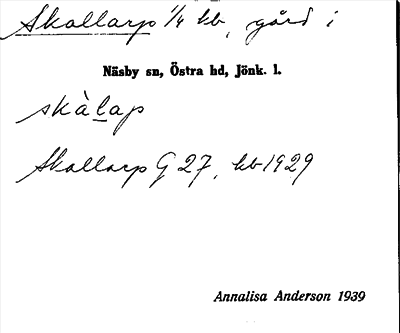 Skallarp 1/4 kb, gård i
Näsby sn, Östra hd, Jönk. l.
skàlap
Skallarp G 27, kb 1929
Annalisa Anderson 1939